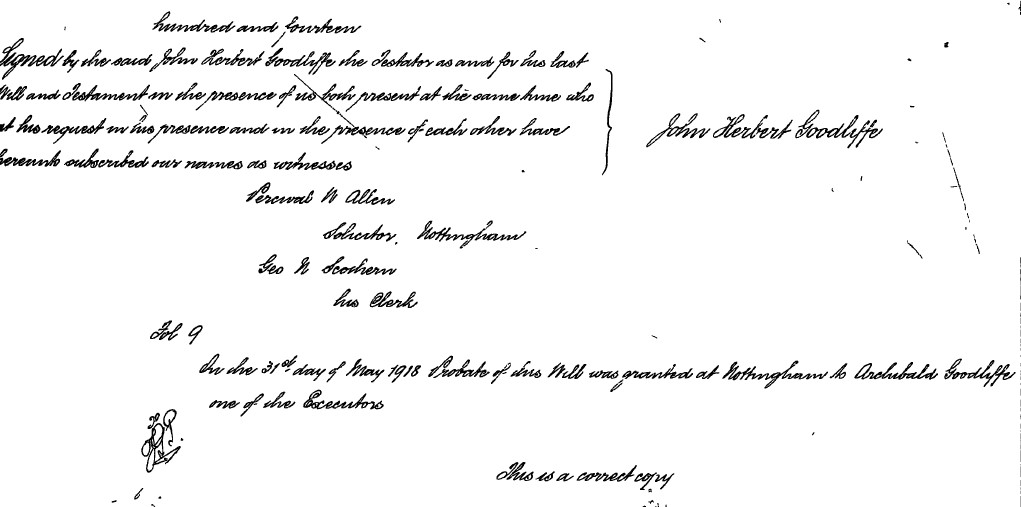 hundred and fourteen
Signed by the said John Herbert Goodliffe the Testator as and for his last
Will and Testament in the presence of us both present at the same time who
at his request in his presence and in the presence of each other have
hereunto subscribed our names as witnesses
John Herbert Goodliffe
Percival W Allen
Solicitor, Nottingham
Geo N Scothern
his Clerk
Fol 9
On the 31st day of May 1918 Probate of this Will was granted at Nottingham to Archibald Goodliffe
one of the Executors
This is a correct copy